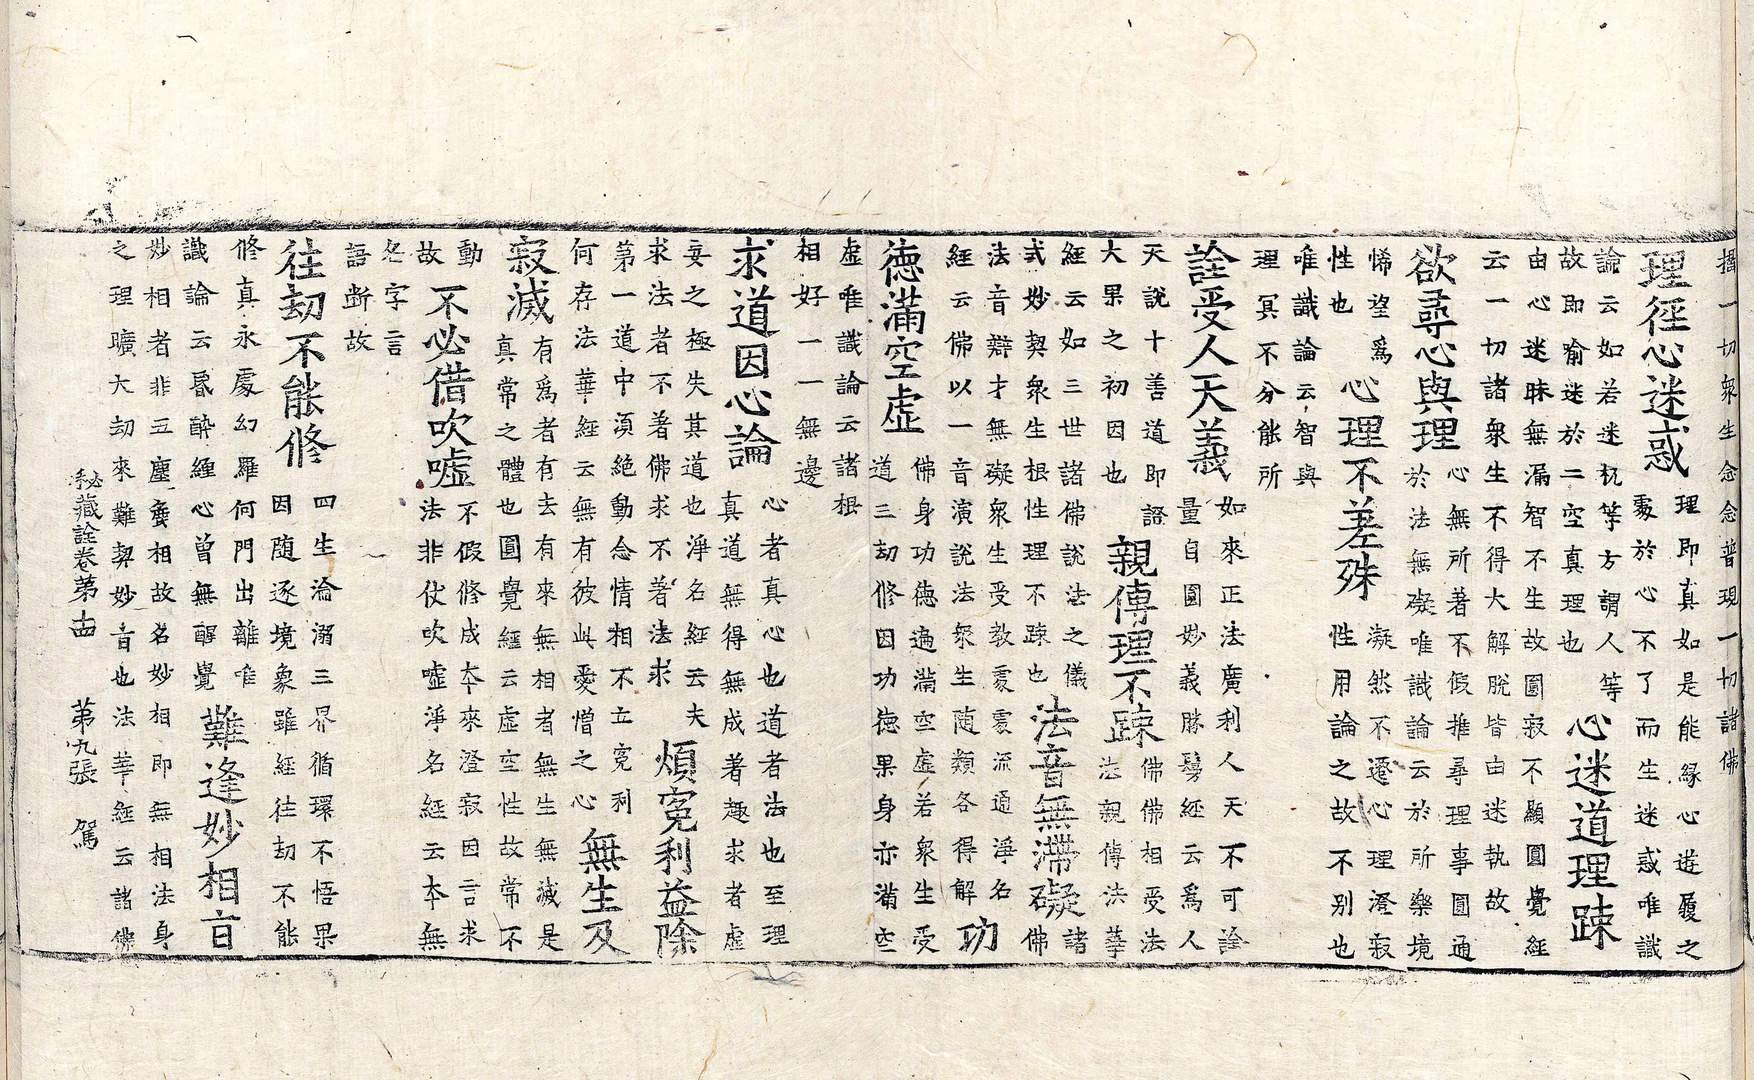 攝一切衆生念念普現一切諸佛
理徑心迷惑 理即真如是能緣心遊履之
處於心不了而生迷惑唯識
論云如若迷杌等方謂人等
故即喻迷於二空真理也 心迷道理踈
由心迷昧無漏智不生故圓寂不顯圓覺經
云一切諸衆生不得大解脫皆由迷執故
欲尋心與理 心無所著不假推尋理事圓通
於法無礙唯識論云於所樂境
悕望爲
性也 心理不差殊 凝然不遷心理澄寂
性用論之故不別也
唯識論云智與
理冥不分能所
詮受人天義 如來正法廣利人天不可詮
量自圓妙義勝鬘經云爲人
天說十善道即證
大果之初因也 親傳理不踈 佛佛相受法
法親傳法華
經云如三世諸佛說法之儀
式妙契衆生根性理不踈也 法音無滯礙 諸
佛
法音辯才無礙衆生受教處處流通淨名
經云佛以一音演說法衆生随類各得解 功
德滿空虛 佛身功德遍滿空虛若衆生受
道三劫修因功德果身亦滿空
虛唯識論云諸根
相好一一無邊
求道因心論 心者真心也道者法也至理
真道無得無成著趣求者虛
妄之極失其道也淨名經云夫
求法者不著佛求不著法求 煩寃利益除
第一道中須絶動念情相不立寃利
何存法華經云無有彼此愛憎之心 無生及
寂滅 有爲者有去有來無相者無生無滅是
真常之體也圓覺經云虛空性故常不
動
故 不必借吹嘘 不假修成夲來澄寂因言求
法非仗吹嘘淨名經云夲無
名字言
語断故
往劫不能修 四生淪溺三界循環不悟果
因随逐境象雖經往劫不能
修真永處幻羅何門出離唯
識論云昬醉經心曽無醒覺 難逢妙相言
妙相者非五塵㚇相故名妙相即無相法身
之理曠大劫來難契妙言也法華經云諸佛
秘藏詮卷第十四 第九張 駕